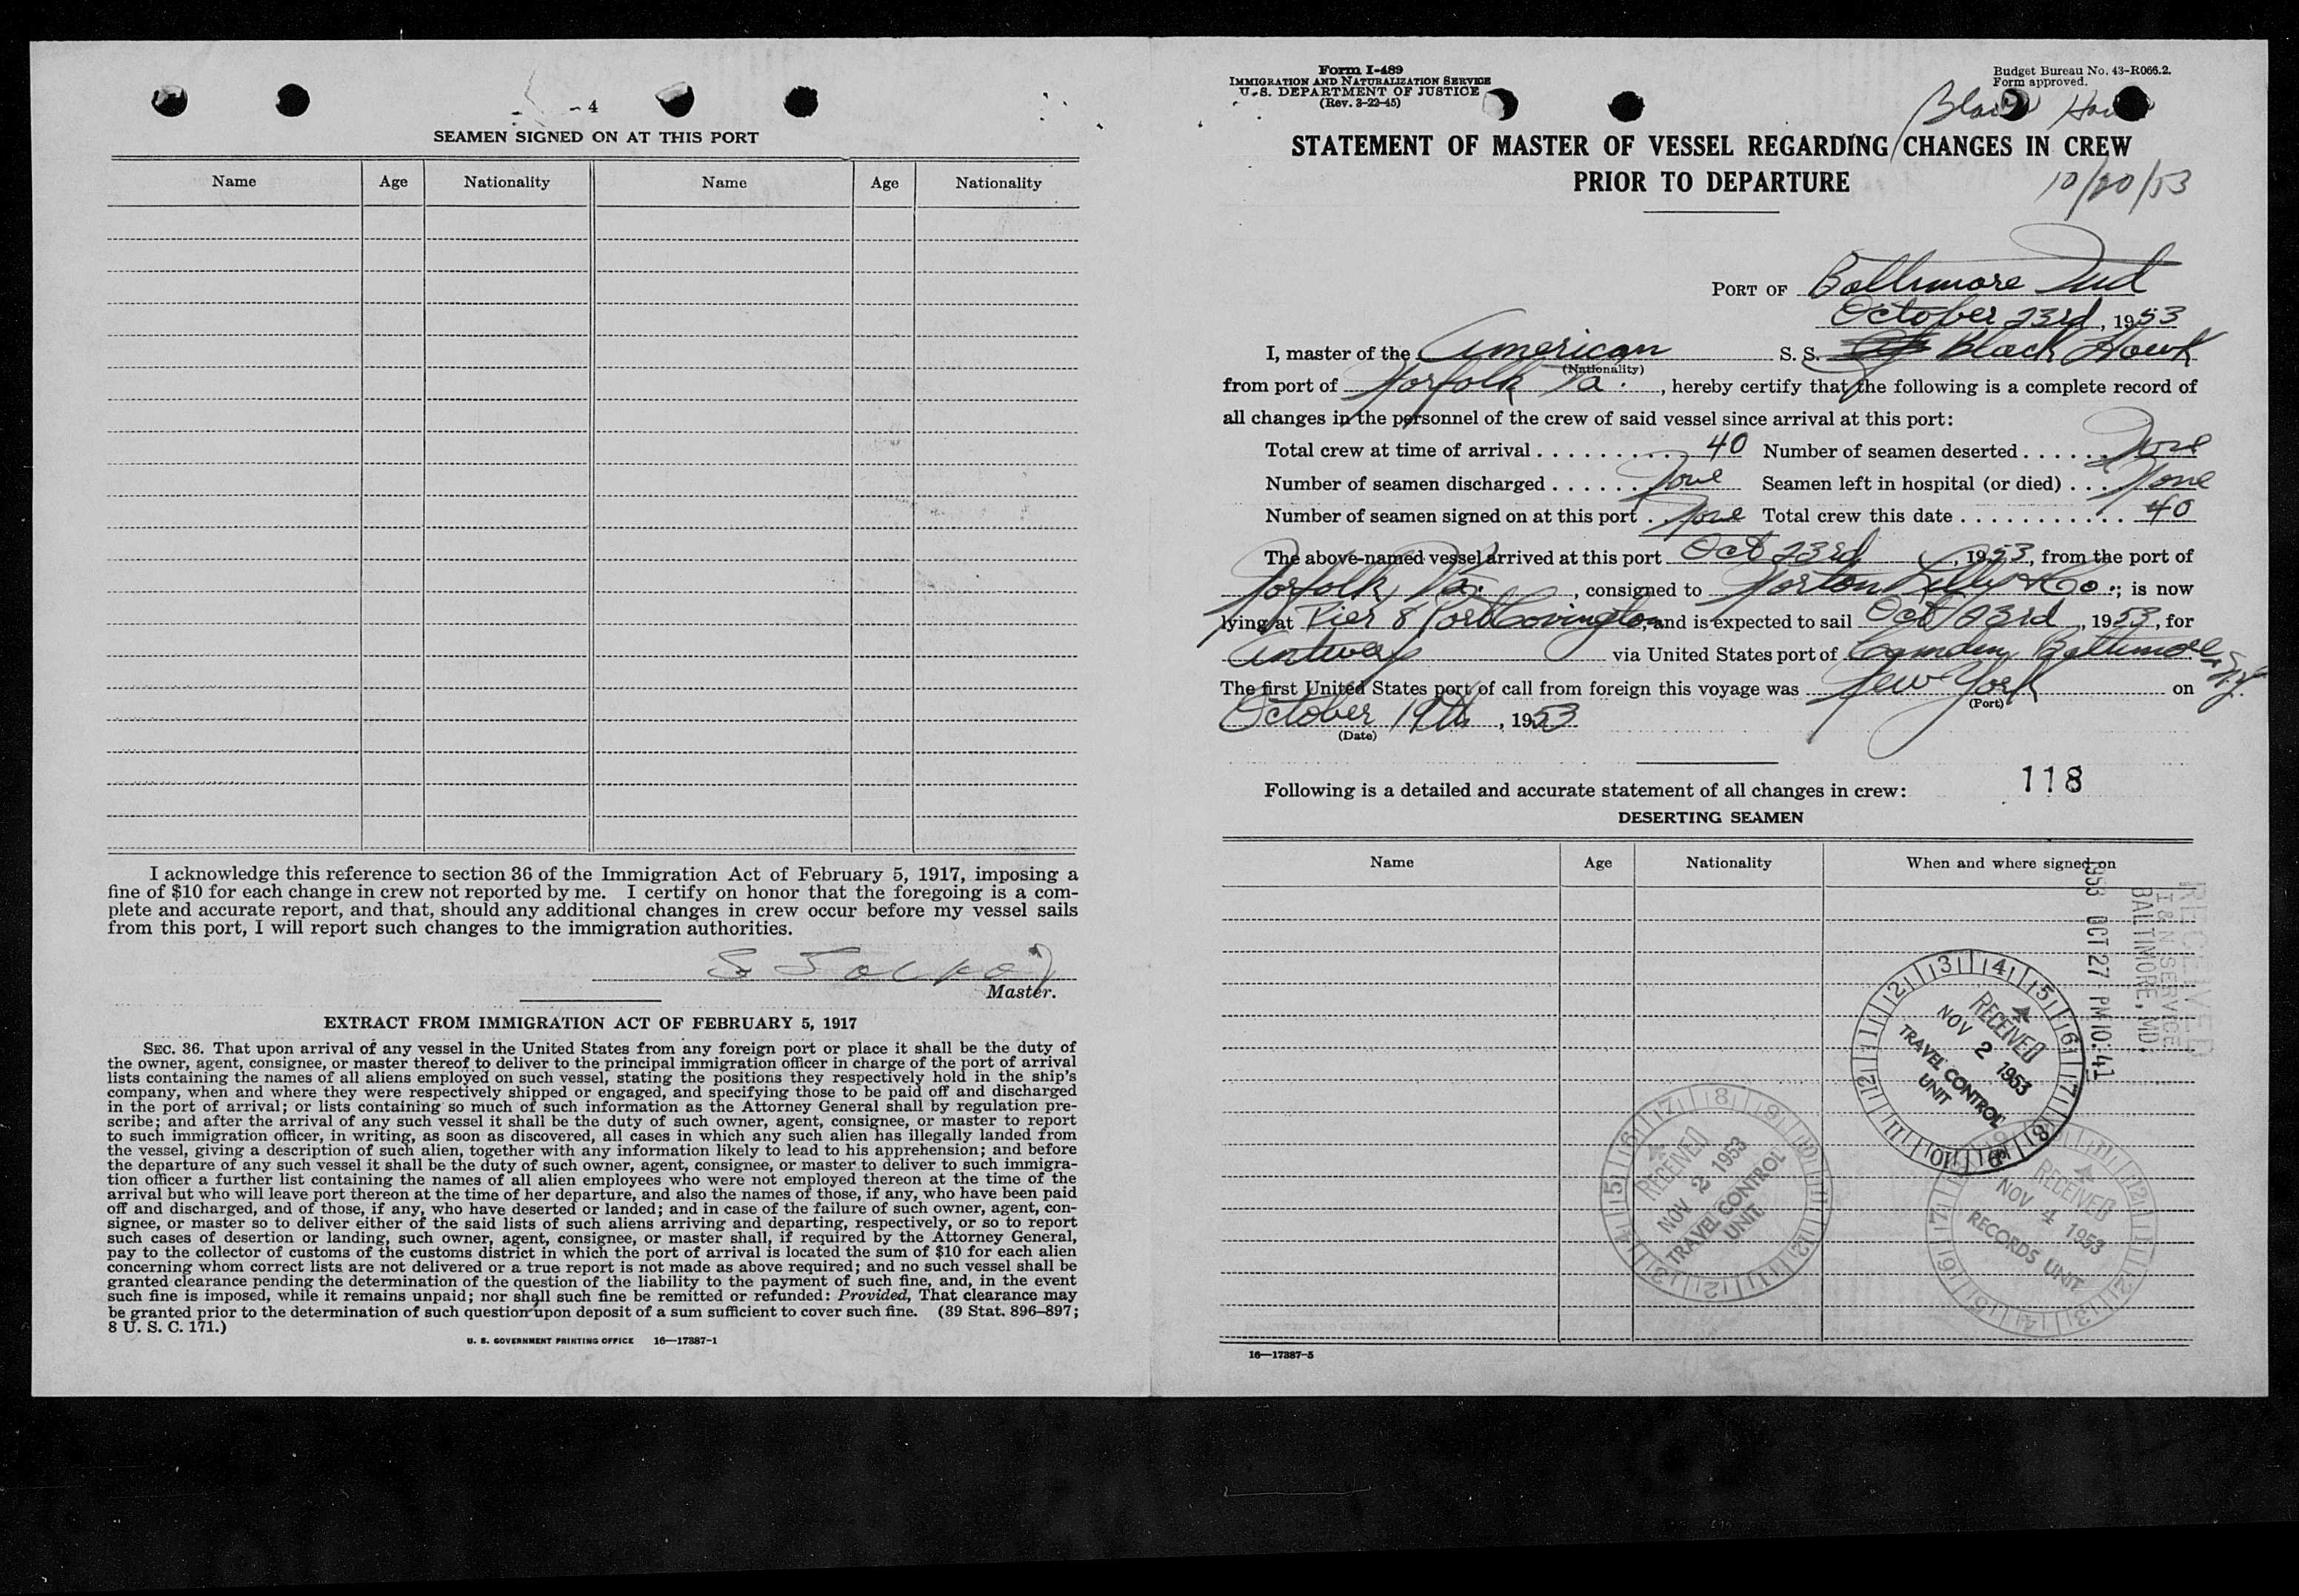 4
SEAMEN SIGNED ON AT THIS PORT
Name Age Nationality Name Age Nationality
I acknowledge this reference to section 36 of the Immigration Act of February 5, 1917, imposing a
fine of $10 for each change in crew not reported by me. I certify on honor that the foregoing is a com-
plete and accurate report, and that, should any additional changes in crew occur before my vessel sails
from this port, I will report such changes to the immigration authorities.
Master.
EXTRACT FROM IMMIGRATION ACT OF FEBRUARY 5, 1917
SEC. 36. That upon arrival of any vessel in the United States from any foreign port or place it shall be the duty of
the owner, agent, consignee, or master thereof to deliver to the principal immigration officer in charge of the port of arrival
lists containing the names of all aliens employed on such vessel, stating the positions they respectively hold in the ship's
company, when and where they were respectively shipped or engaged, and specifying those to be paid off and discharged
in the port of arrival; or lists containing so much of such information as the Attorney General shall by regulation pre-
scribe; and after the arrival of any such vessel it shall be the duty of such owner, agent, consignee, or master to report
to such immigration officer, in writing, as soon as discovered, all cases in which any such alien has illegally landed from
the vessel, giving a description of such alien, together with any information likely to lead to his apprehension; and before
the departure of any such vessel it shall be the duty of such owner, agent, consignee, or master to deliver to such immigra-
tion officer a further list containing the names of all alien employees who were not employed thereon at the time of the
arrival but who will leave port thereon at the time of her departure, and also the names of those, if any, who have been paid
off and discharged, and of those, if any, who have deserted or landed; and in case of the failure of such owner, agent, con-
signee, or master so to deliver either of the said lists of such aliens arriving and departing, respectively, or so to report
such cases of desertion or landing, such owner, agent, consignee, or master shall, if required by the Attorney General,
pay to the collector of customs of the customs district in which the port of arrival is located the sum of $10 for each alien
concerning whom correct lists are not delivered or a true report is not made as above required; and no such vessel shall be
granted clearance pending the determination of the question of the liability to the payment of such fine, and, in the event
such fine is imposed, while it remains unpaid; nor shall such fine be remitted or refunded: Provided, That clearance may
be granted prior to the determination of such question upon deposit of a sum sufficient to cover such fine. (39 Stat. 896–897;
8 U. S. C. 171.)
U. S. GOVERNMENT PRINTING OFFICE 16—17387-1
Form I-489
IMMIGRATION AND NATURALIZATION SERVICE
U. S. DEPARTMENT OF JUSTICE
(Rev. 3-22-45)
Budget Bureau No. 43-R066.2.
Form approved.
STATEMENT OF MASTER OF VESSEL REGARDING CHANGES IN CREW
PRIOR TO DEPARTURE
10/20/53
PORT OF Baltimore Md
October 23rd, 1953
I, master of the American S. S. Black Hawk
(Nationality)
from port of Norfolk Va., hereby certify that the following is a complete record of
all changes in the personnel of the crew of said vessel since arrival at this port:
Total crew at time of arrival 40 Number of seamen deserted None
Number of seamen discharged None Seamen left in hospital (or died) None
Number of seamen signed on at this port None Total crew this date 40
The above-named vessel arrived at this port Oct 23rd, 1953, from the port of
Norfolk, Va., consigned to Norton Lilly & Co.; is now
lying at Pier 8 Port Covington, and is expected to sail Oct 23rd, 1953, for
Antwerp via United States port of Camden, Baltimore, N.Y.
The first United States port of call from foreign this voyage was New York on
(Port)
October 19th, 1953
(Date)
118
Following is a detailed and accurate statement of all changes in crew:
DESERTING SEAMEN
Name Age Nationality When and where signed on
RECEIVED
I & N SERVICE
BALTIMORE, MD.
1953 OCT 27 PM 10:41
RECEIVED
NOV 2 1953
TRAVEL CONTROL
UNIT
RECEIVED
NOV 2 1953
TRAVEL CONTROL
UNIT
RECEIVED
NOV 4 1953
RECORDS UNIT
16—17387-5